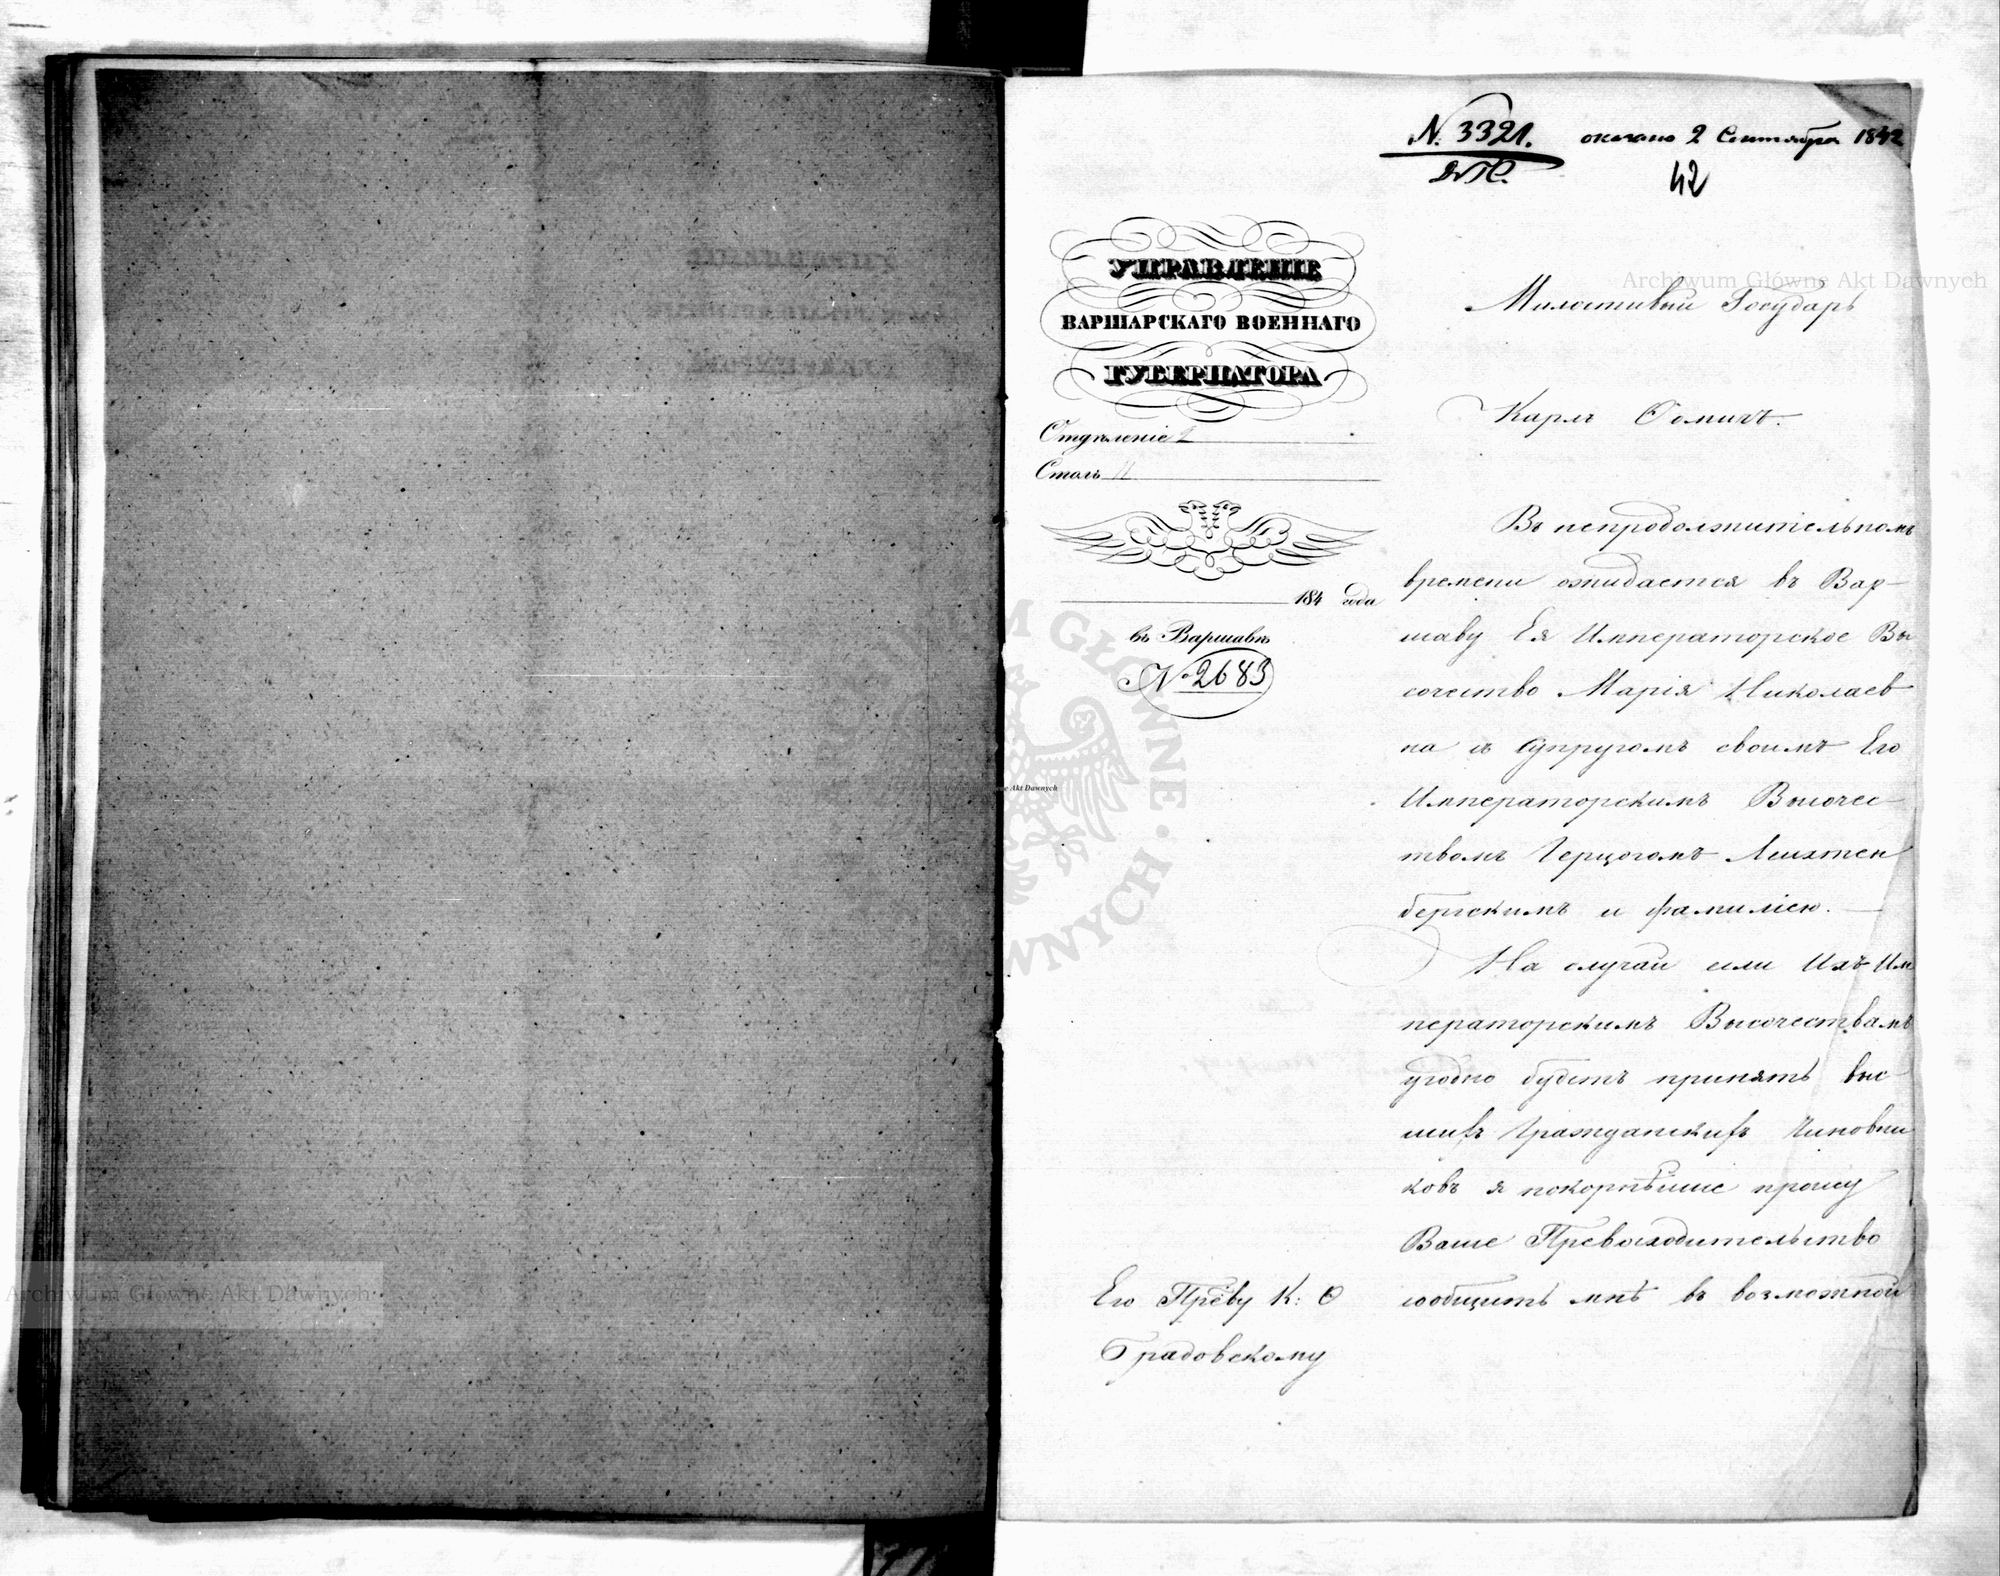 N. 3321.
2 Сентября 1842
42
УПРАВЛЕНІЕ
ВАРШАВСКАГО ВОЕННАГО
ГУБЕРНАТОРА
Отдѣленіе 2
Столъ 11
184 года
въ Варшавѣ
№ 2683
Милостивый Государь
Карлъ Ѳомичъ.
Въ непродолжительномъ
времени ожидается въ Вар-
шаву Ея Императорское Вы
сочество Марія Николаев
на съ Супругомъ своимъ Его
Императорскимъ Высочес
твомъ Герцогомъ Лихтен
бергскимъ и фамиліею.
На случай если Ихъ Им
ператорскимъ Высочествамъ
угодно будетъ принять выс
шихъ Гражданскихъ Чиновни
ковъ я покорнѣйше прошу
Ваше Превосходительство
сообщить мнѣ въ возможной
Его Прѣву К: Ѳ
Градовскому
Archiwum Główne Akt Dawnych
Archiwum Główne Akt Dawnych
ne Akt Dawnych